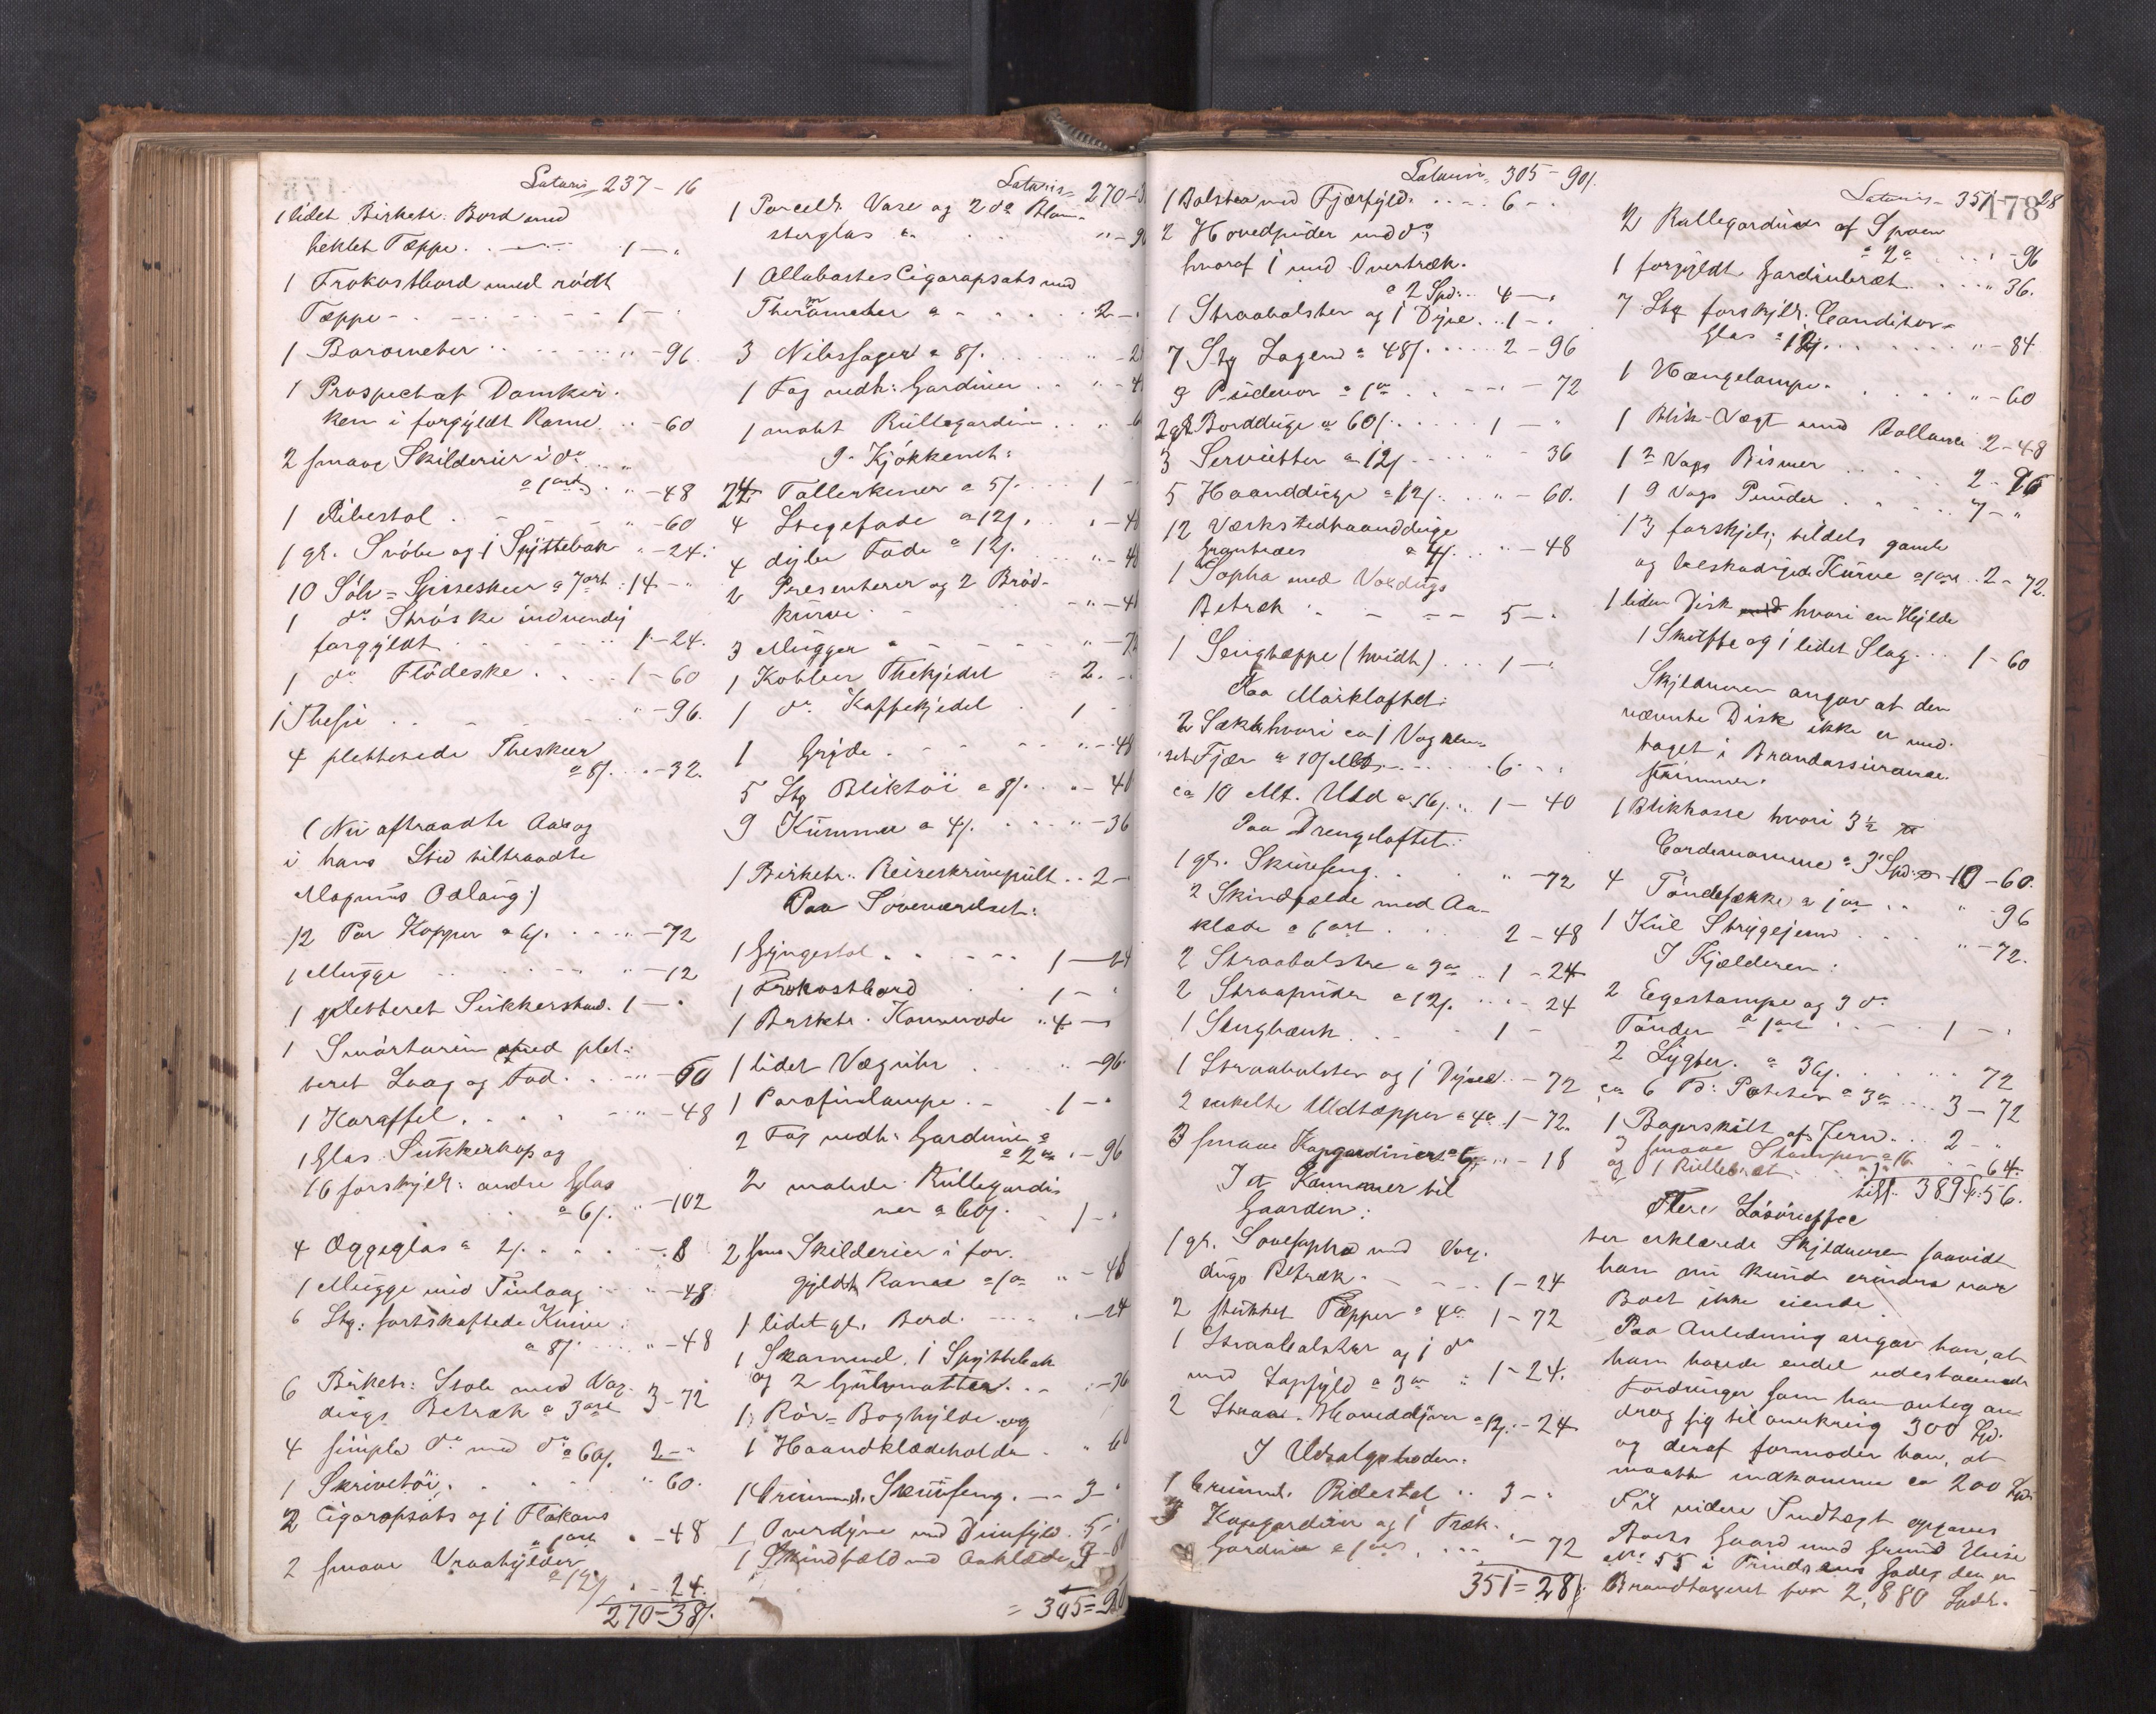 Lateris 237 - 16
1 lidet Birketr: Bord med
heklet Tæppe . . 1 - "
1 Frokostbord med rødt
Tæppe - . . 1 - "
1 Barometer . . " - 96.
1 Prospect af Domkir-
ken i forgyldt Rame . . - 60
2 smaae Skilderier i do
a 1 ort . " - 48
1 Pibestol . . " - 60
1 gl. Svøbe og 1 Spyttebak " - 24.
10 Sølv = Spiseskeer a 7 ort . 14 - "
1 do Strøske indvendig
forgyldt . . 1 - 24.
1 do Flødeske . . 1 - 60
1 Thesie . . " - 96.
4 pletterede Theskeer
a 8 s. . . - 32.
(Nu aftraadte Aas og
i hans Sted tiltraadte
Magnus Odlaug.)
12 Par Kopper a 6 s. . . " - 72
1 Mugge . . " - 12
1 pletteret Sukkerskaal. 1 - "
1 Smørterin med plet-
teret Laag og Fad . . " - 60
1 Karaffel . . " - 48
1 Glas Sukkerkop og
16 forskjell: andre Glas
a 6 s. " - 102
4 Æggeglas a 2 s. . . - 8
1 Mugge med Tinlaag . " - 48
6 Stk: sortskaftede Knive
a 8 s. . " - 48
6 Birketr: Stole med Vox-
dugs Betræk a 3 ort 3 - 72
4 simple do med do a 60 s. 2 - "
1 Skrivetøi . . " 60.
2 Cigaropsats og 1 Flakons
a 1 ort . - 48
2 smaae Vraahylder
a 12 s . - 24.
270 - 38 s.
Lateris 270 - 3
1 Porcell. Vase og 2 do Blom-
sterglas a . . " - 9
1 Allabastes Cigaropsats med
Thermometer a . . 2 - "
3 Nibssager a 8 s. . . " - 2
1 Fag nedh: Gardiner . . " - 4
1 malet Rullegardin . . " 6
I Kjøkkenet:
24 Tallerkener a 5 s. . 1 -
4 Stegefade a 12 s. . . - 48
4 dybe Fade a 12 s. . . " - 48
2 Presenterer og 2 Brød-
kurve . . " - 4
3 Mugger a . . " - 72
1 Kobber Thekjedel . 2. -
1 do. Kaffekjedel . 1 -
1 Gryde . . " - 48
5 Stk Bliktøi a 8 s. . " - 40
9 Kummer a 4 s. . . " - 36
1 Birketr. Reiseskrivepult . . 2 -
Paa Soveværelset:
1 Gyngestol . . 1 - 24
1 Frokostbord . 1 - "
1 Birketr. Kommode " 4 - "
1 lidet Væguhr . . " - 96.
1 Parafinlampe . - . 1 - "
2 Fag nedh: Gardiner a
a 2 ort . - 96
2 malede Rullegardi-
ner a 60 s. . 1 - "
2 smaa Skilderier i for-
gyldt Rame a 1 ort " - 48
1 lidet gl. Bord . . . - 24
1 Skammel. 1 Spyttebak
og 2 Gulvmatter . . . - 36
1 Rør = Boghylde og
1 Haandklædeholder . " 6
1 Grinmalt. Skuvseng . . - 3 "
1 Overdyne med Duunfyld . 5 -
1 Skindfæld med Aaklæde 3 -
= 305 = 90
Lateris 305 - 90 s.
1 Bolster med Fjærfyld . . 6 - "
2 Hovedpuder med do,
hvoraf 1 med Overtræk.
a 2 Spd . . 4 - "
1 Straabolster og 1 Dyne . . 1 - "
7 Stk Lagener a 48 s. . . 2 - 96
9 Pudevar a 1 ort . . " - 72
2 gl Bordduge a 60 s. . . 1 - "
3 Servietter a 12 s. . . " - 36
5 Haandduge a 12 s. . . " - 60.
12 Værkstedhaandduge
a 4 s. . " - 48
1 Sopha med Voxdugs
Betræk . - - - 5 - "
1 Sengtæppe (hvidt) . . 1 - "
Paa Mørkloftet:
2 Sække hvori ca 1 Vog ren-
set Fjær . . 6 - "
ca 10 Mk. Uld a 16 s. . 1 - 40
Paa Drengeloftet:
1 gl. Skuvseng . . " - 72
2 Skindfælde med Aa-
klæde a 6 ort . . 2 - 48
2 Straabolstre a 3 ort . 1 - 24
2 Straapuder a 12 s. . . - 24
1 Sengbænk . . . 1 -
1 Straabolster og 1 Dyne . - 72
2 enkelte Uldtæpper a 4 ort 1 - 72.
3 smaae Kapgardiner a 6 s. . - 18
I et Kammer til
Gaarden:
1 gl. Sovesopha med Vox-
dugs Betræk . - - 1 - 24
2 stukket Tæpper a 4 ort 1 - 72
1 Straabolster og 1 do
med Lapfyld a 3 ort " 1 - 24.
2 Straae - Hoveddyner a 12 s. . - 24
I Udsalgsboden.
1 Grinmalt. Pidestel . . 3 - "
3 Kapgardiner og 1 Træk-
Gardin a 1 ort . . " - 72
351 = 28 s.
178
Lateris 351 - 28
2 Rullegardiner af Spoen
a 2 ort . . - 96
1 forgyldt Gardinbræt . . " 36.
7 Stk forskjell. Conditor-
Glas a 12 s. . . " - 84
1 Hængelampe . . " - 60
1 Blik-Vægt med Ballance 2 - 48
1 2 Vogs Bismer . . 2 - 96
1 9 Vogs Punder . . 7 - "
13 forskjell; tildels gamle
og beskadigede Kurve a 1 ort . 2 - 72.
1 liden Disk hvori en Hylde
1 Skuffe og 1 lidet Slag . . 1 - 60
Skyldneren angav at den
nævnte Disk ikke er med-
taget i Brandassurance
summen.
1 Blikkasse hvori 3 1/2
Cardemomme a 3 Spd. 10 - 60.
4 Tøndesække a 1 ort . . " 96
1 Kul Strygejern . . " - 72.
I Kjælderen:
2 Egestamper og 3 do
Tønder a 1 ort . . 1 - "
2 Lygter . a 36 s. . . 72
ca 6 Td: Poteter a 3 ort . . 3 - 72
1 Bagerskilt af Jern . . 2 - "
3 smaae Stamper a 16
og 1 Rullebræt . . - 64.
till. 389 - 56.
Flere Løsøreeffec-
ter erklærede Skyldneren saavidt
han nu kunde erindre var
Boet ikke eiende.
Paa Anledning angav han, at
han havde endel udestaaende
Fordringer som han antog an-
drog sig til omkring 300 Spd.
og deraf formoder han, at
maatte indkomme ca 200 Spd.
Til videre Indtægt opgaves
Boets Gaard med Grund Huse
No 55 i Prindsens Gade, den er
Brandtaxeret for 2,880 Spdl.